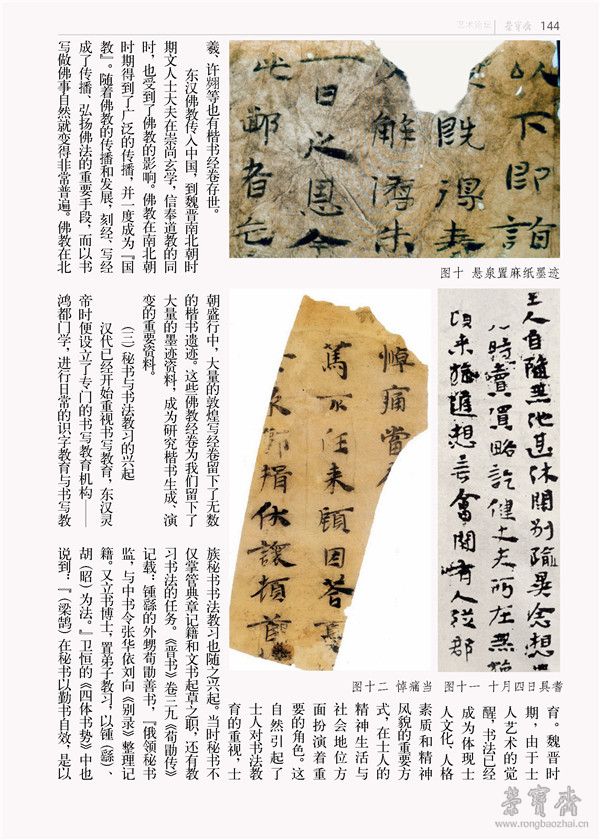 艺术论坛 榮寶齋 144
下即詣
既得
解
一日之恩今
鄙者
图十 悬泉置麻纸墨迹
羲、许翙等也有楷书经卷存世。
东汉佛教传入中国，到魏晋南北朝时
期文人士大夫在崇尚玄学，信奉道教的同
时，也受到了佛教的影响。佛教在南北朝
时期得到了广泛的传播，并一度成为『国
教』。随着佛教的传播和发展，刻经、写经
成了传播、弘扬佛法的重要手段，而以书
写做佛事自然就变得非常普遍。佛教在北
朝盛行中，大量的敦煌写经卷留下了无数
的楷书遗迹。这些佛教经卷为我们留下了
大量的墨迹资料，成为研究楷书生成、演
变的重要资料。
（三）秘书与书法教习的兴起
汉代已经开始重视书写教育，东汉灵
帝时便设立了专门的书写教育机构——
鸿都门学，进行日常的识字教育与书写教
悼痛當
篤不任来顧因答
图十二 悼痛当
图十一 十月四日具书
育。魏晋时
期，由于士
人艺术的觉
醒，书法已经
成为体现士
人文化、人格
素质和精神
风貌的重要方
式，在士人的
精神生活与
社会地位方
面扮演着重
要的角色。这
自然引起了
士人对书法教
育的重视，士
族秘书书法教习也随之兴起。当时秘书不
仅掌管典章记籍和文书起草之职，还有教
习书法的任务。《晋书》卷三九《荀勖传》
记载：钟繇的外甥荀勖善书，『俄领秘书
监，与中书令张华依刘向《别录》整理记
籍。又立书博士，置弟子教习，以钟（繇）、
胡（昭）为法。』卫恒的《四体书势》中也
说到：『（梁鹄）在秘书以勤书自效，是以
榮寶齋
www.rongbaozhai.cn